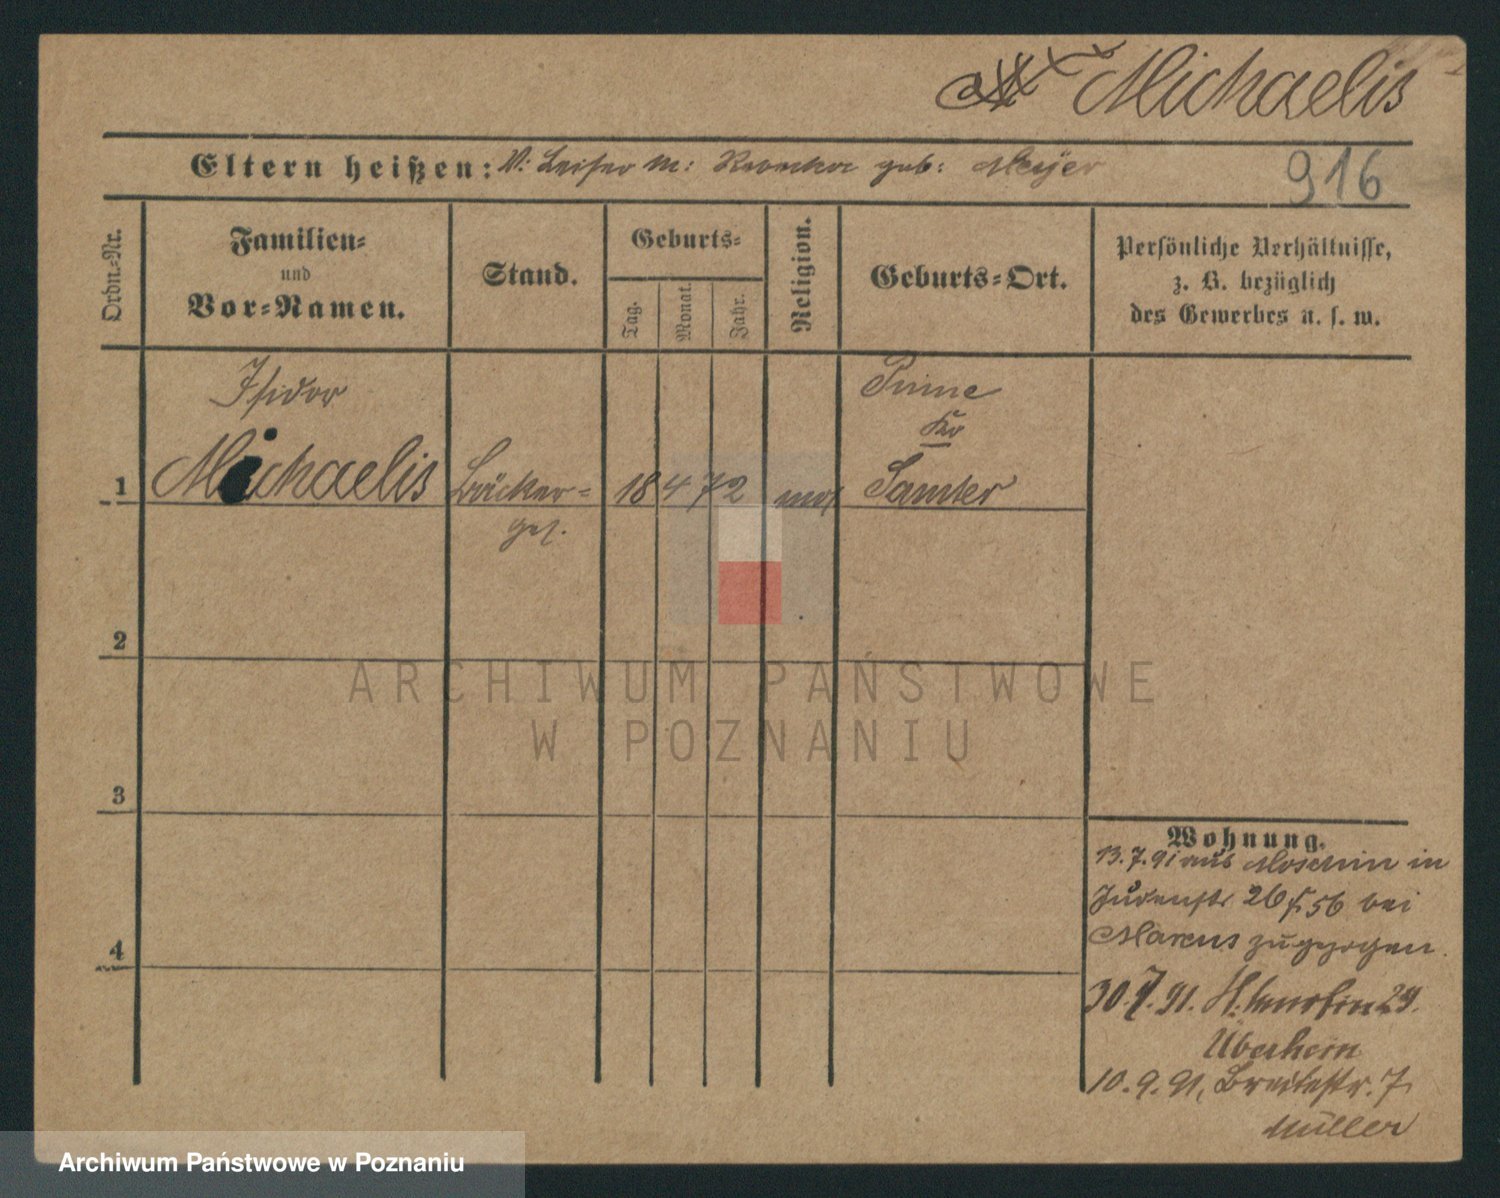 Michaelis
Eltern heißen: V: Leiser M: geb: Meyer
916
Ordn.-Nr.
Familien-
und
Vor-Namen.
Stand.
Geburts-
Tag.
Monat.
Jahr.
Religion.
Geburts-Ort.
Persönliche Verhältnisse,
z. B. bezüglich
des Gewerbes u. s. w.
Isidor
Pinne
Kr
1 Michaelis Bäcker- 18 4 72 mos. Samter
ges.
2
3
4
ARCHIWUM PAŃSTWOWE
W POZNANIU
Wohnung.
13.7.91 aus Moschin in
Judenstr 26 56 bei
Marcus zugezogen.
30.7.91. 29.
10.9.91, Breitestr. 7
Müller
Archiwum Państwowe w Poznaniu